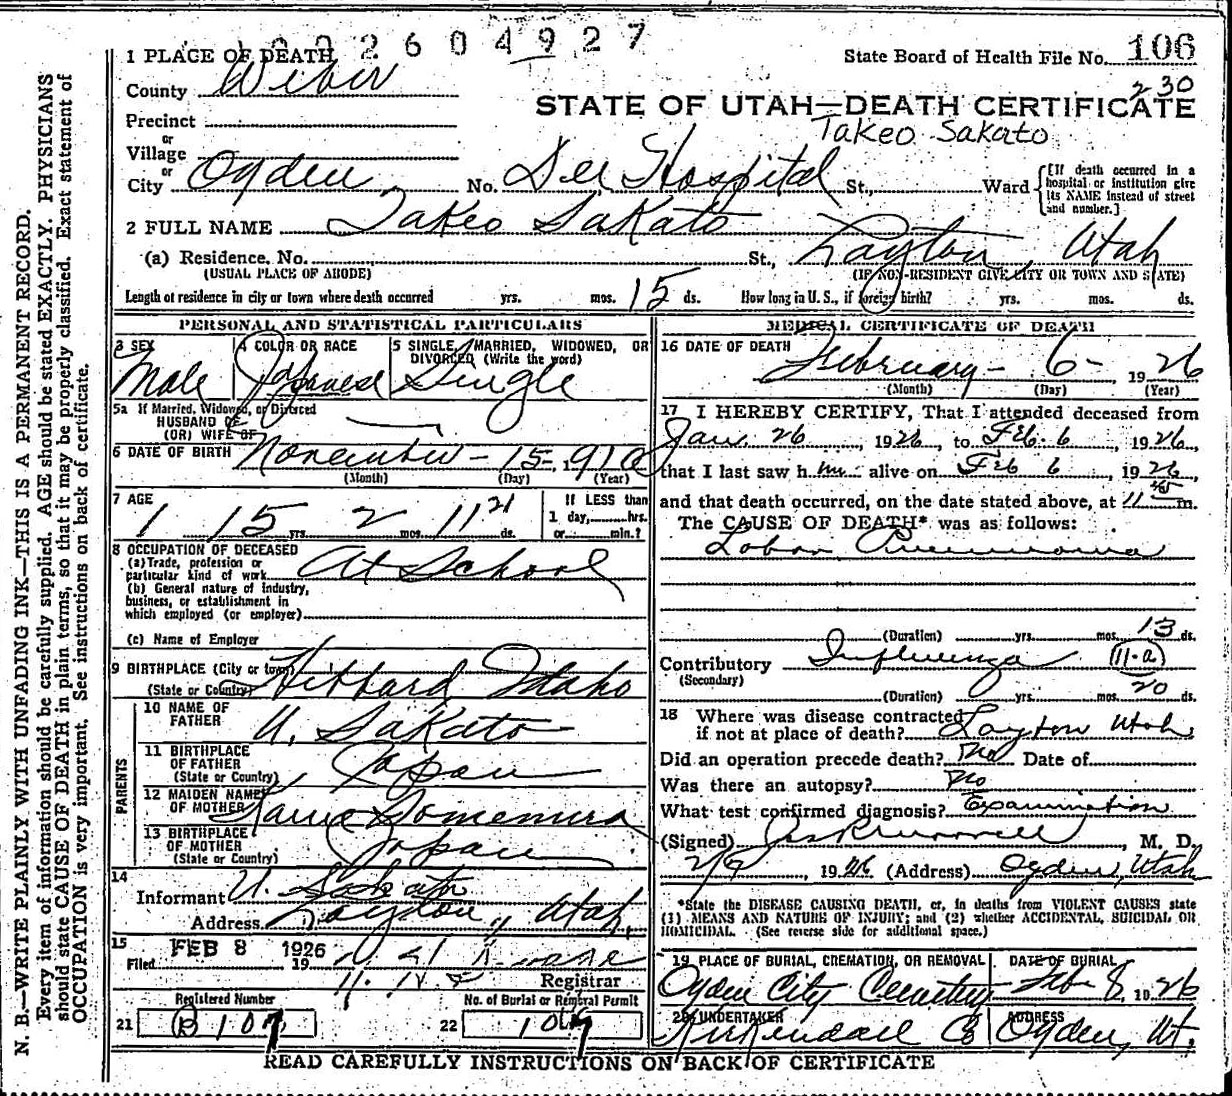 1002604927
1 PLACE OF DEATH
State Board of Health File No. 106
County Weber
230
STATE OF UTAH—DEATH CERTIFICATE
Precinct
Takeo Sakato
or
Village
or
City Ogden No. Dee Hospital St., Ward [If death occurred in a hospital or institution give its NAME instead of street and number.]
2 FULL NAME Takeo Sakato
(a) Residence, No. St., Layton, Utah
(USUAL PLACE OF ABODE) (IF NON-RESIDENT GIVE CITY OR TOWN AND STATE)
Length of residence in city or town where death occurred yrs. mos. 15 ds. How long in U. S., if foreign birth? yrs. mos. ds.
PERSONAL AND STATISTICAL PARTICULARS
3 SEX Male
4 COLOR OR RACE Japanese
5 SINGLE, MARRIED, WIDOWED, OR DIVORCED (Write the word) Single
5a If Married, Widowed, or Divorced
HUSBAND OF
(OR) WIFE OF
6 DATE OF BIRTH November - 15, 1910
(Month) (Day) (Year)
7 AGE 15 yrs. 2 mos. 21 ds.
If LESS than
1 day, hrs.
or min.?
8 OCCUPATION OF DECEASED
(a) Trade, profession or
particular kind of work At School
(b) General nature of industry,
business, or establishment in
which employed (or employer)
(c) Name of Employer
9 BIRTHPLACE (City or town)
(State or Country) Hibbard Idaho
PARENTS
10 NAME OF
FATHER U. Sakato
11 BIRTHPLACE
OF FATHER
(State or Country) Japan
12 MAIDEN NAME
OF MOTHER
13 BIRTHPLACE
OF MOTHER
(State or Country) Japan
14
Informant U. Sakato
Address Layton, Utah
15 FEB 8 1926
Filed 19
Registrar
Registered Number
21 B 107
No. of Burial or Removal Permit
22
MEDICAL CERTIFICATE OF DEATH
16 DATE OF DEATH February - 6 - 1926
(Month) (Day) (Year)
17 I HEREBY CERTIFY, That I attended deceased from
Jan. 26, 1926, to Feb. 6 1926,
that I last saw him alive on Feb 6 1926
and that death occurred, on the date stated above, at 11 45 m.
The CAUSE OF DEATH* was as follows:
Lobar Pneumonia
(Duration) yrs. mos. 13 ds.
Contributory Influenza (11-a)
(Secondary)
(Duration) yrs. mos. 20 ds.
18 Where was disease contracted
if not at place of death? Layton Utah
Did an operation precede death? No Date of
Was there an autopsy? No
What test confirmed diagnosis? Examination
(Signed) M. D.
1926 (Address) Ogden, Utah
*State the DISEASE CAUSING DEATH, or, in deaths from VIOLENT CAUSES state
(1) MEANS AND NATURE OF INJURY; and (2) whether ACCIDENTAL, SUICIDAL OR
HOMICIDAL. (See reverse side for additional space.)
19 PLACE OF BURIAL, CREMATION, OR REMOVAL Ogden City Cemetery
DATE OF BURIAL Feb 8 1926
20 UNDERTAKER Kirkendall Co
ADDRESS Ogden, Ut.
READ CAREFULLY INSTRUCTIONS ON BACK OF CERTIFICATE
N. B.—WRITE PLAINLY WITH UNFADING INK—THIS IS A PERMANENT RECORD.
Every item of information should be carefully supplied. AGE should be stated EXACTLY. PHYSICIANS
should state CAUSE OF DEATH in plain terms, so that it may be properly classified. Exact statement of
OCCUPATION is very important. See instructions on back of certificate.